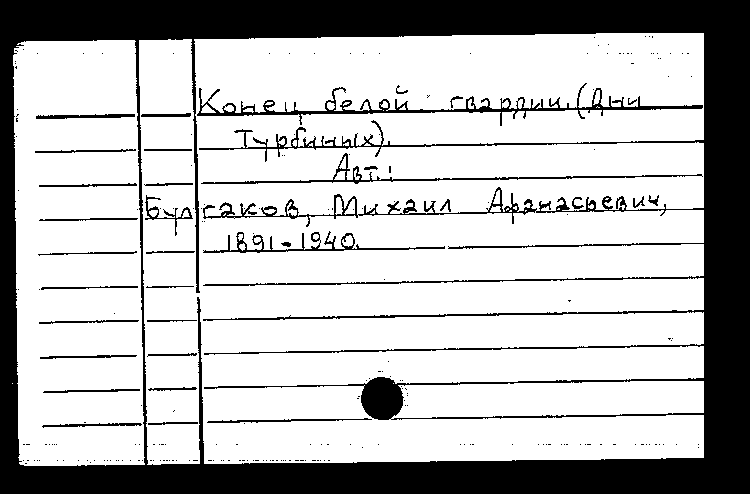 Конец белой гвардии. (Дни
Турбиных).
Авт.:
Булгаков, Михаил Афанасьевич,
1891-1940.